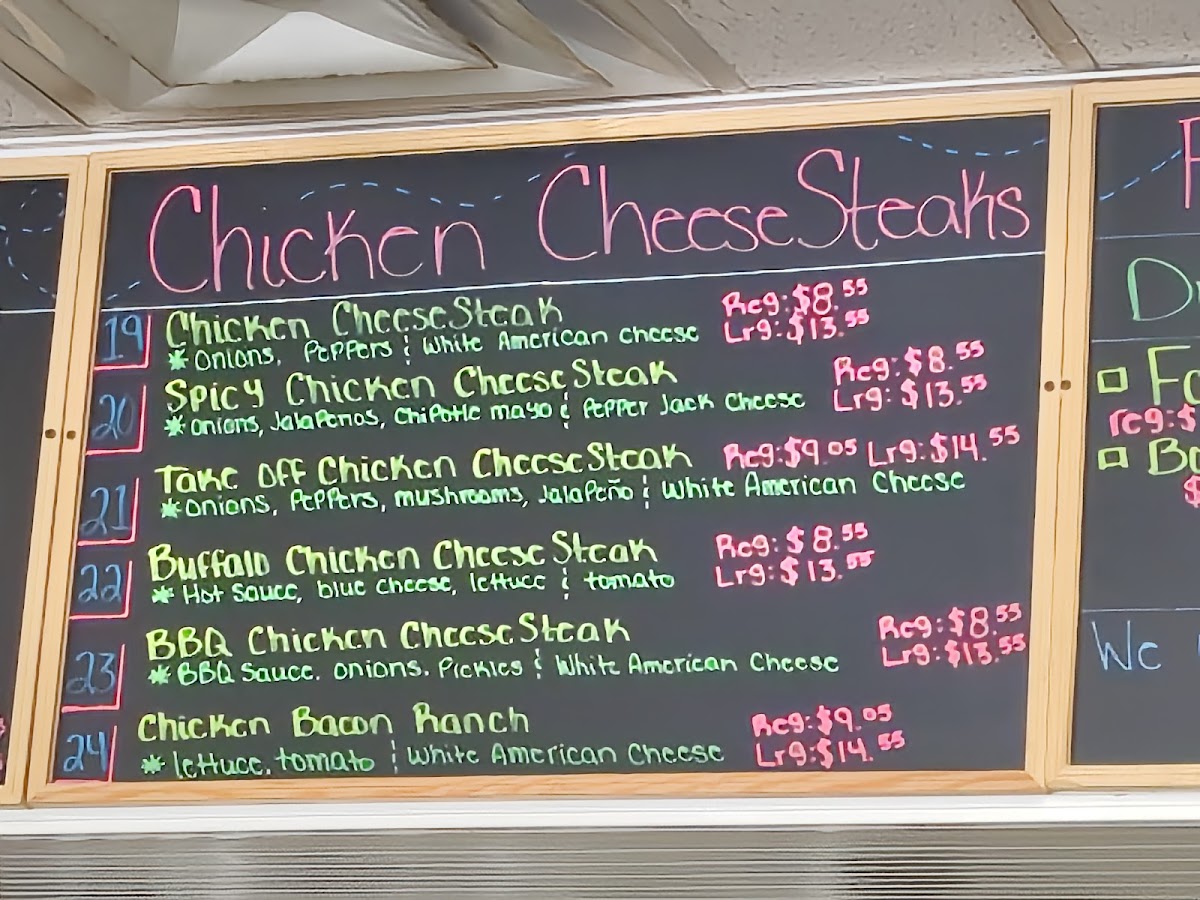 Chicken CheeseSteaks
19 Chicken CheeseSteak Reg: $8.55
*Onions, Peppers & White American Cheese Lrg: $13.55
20 Spicy Chicken CheeseSteak Reg: $8.55
*Onions, Jalapenos, Chipotle mayo & Pepper Jack Cheese Lrg: $13.55
21 Take Off Chicken CheeseSteak Reg: $9.05 Lrg: $14.55
*Onions, Peppers, mushrooms, Jalapeño & White American Cheese
22 Buffalo Chicken Cheese Steak Reg: $8.55
*Hot Sauce, blue cheese, lettuce & tomato Lrg: $13.55
23 BBQ Chicken CheeseSteak Reg: $8.55
*BBQ Sauce, onions, Pickles & White American Cheese Lrg: $13.55
24 Chicken Bacon Ranch Reg: $9.05
*lettuce, tomato & White American Cheese Lrg: $14.55
reg: $
We